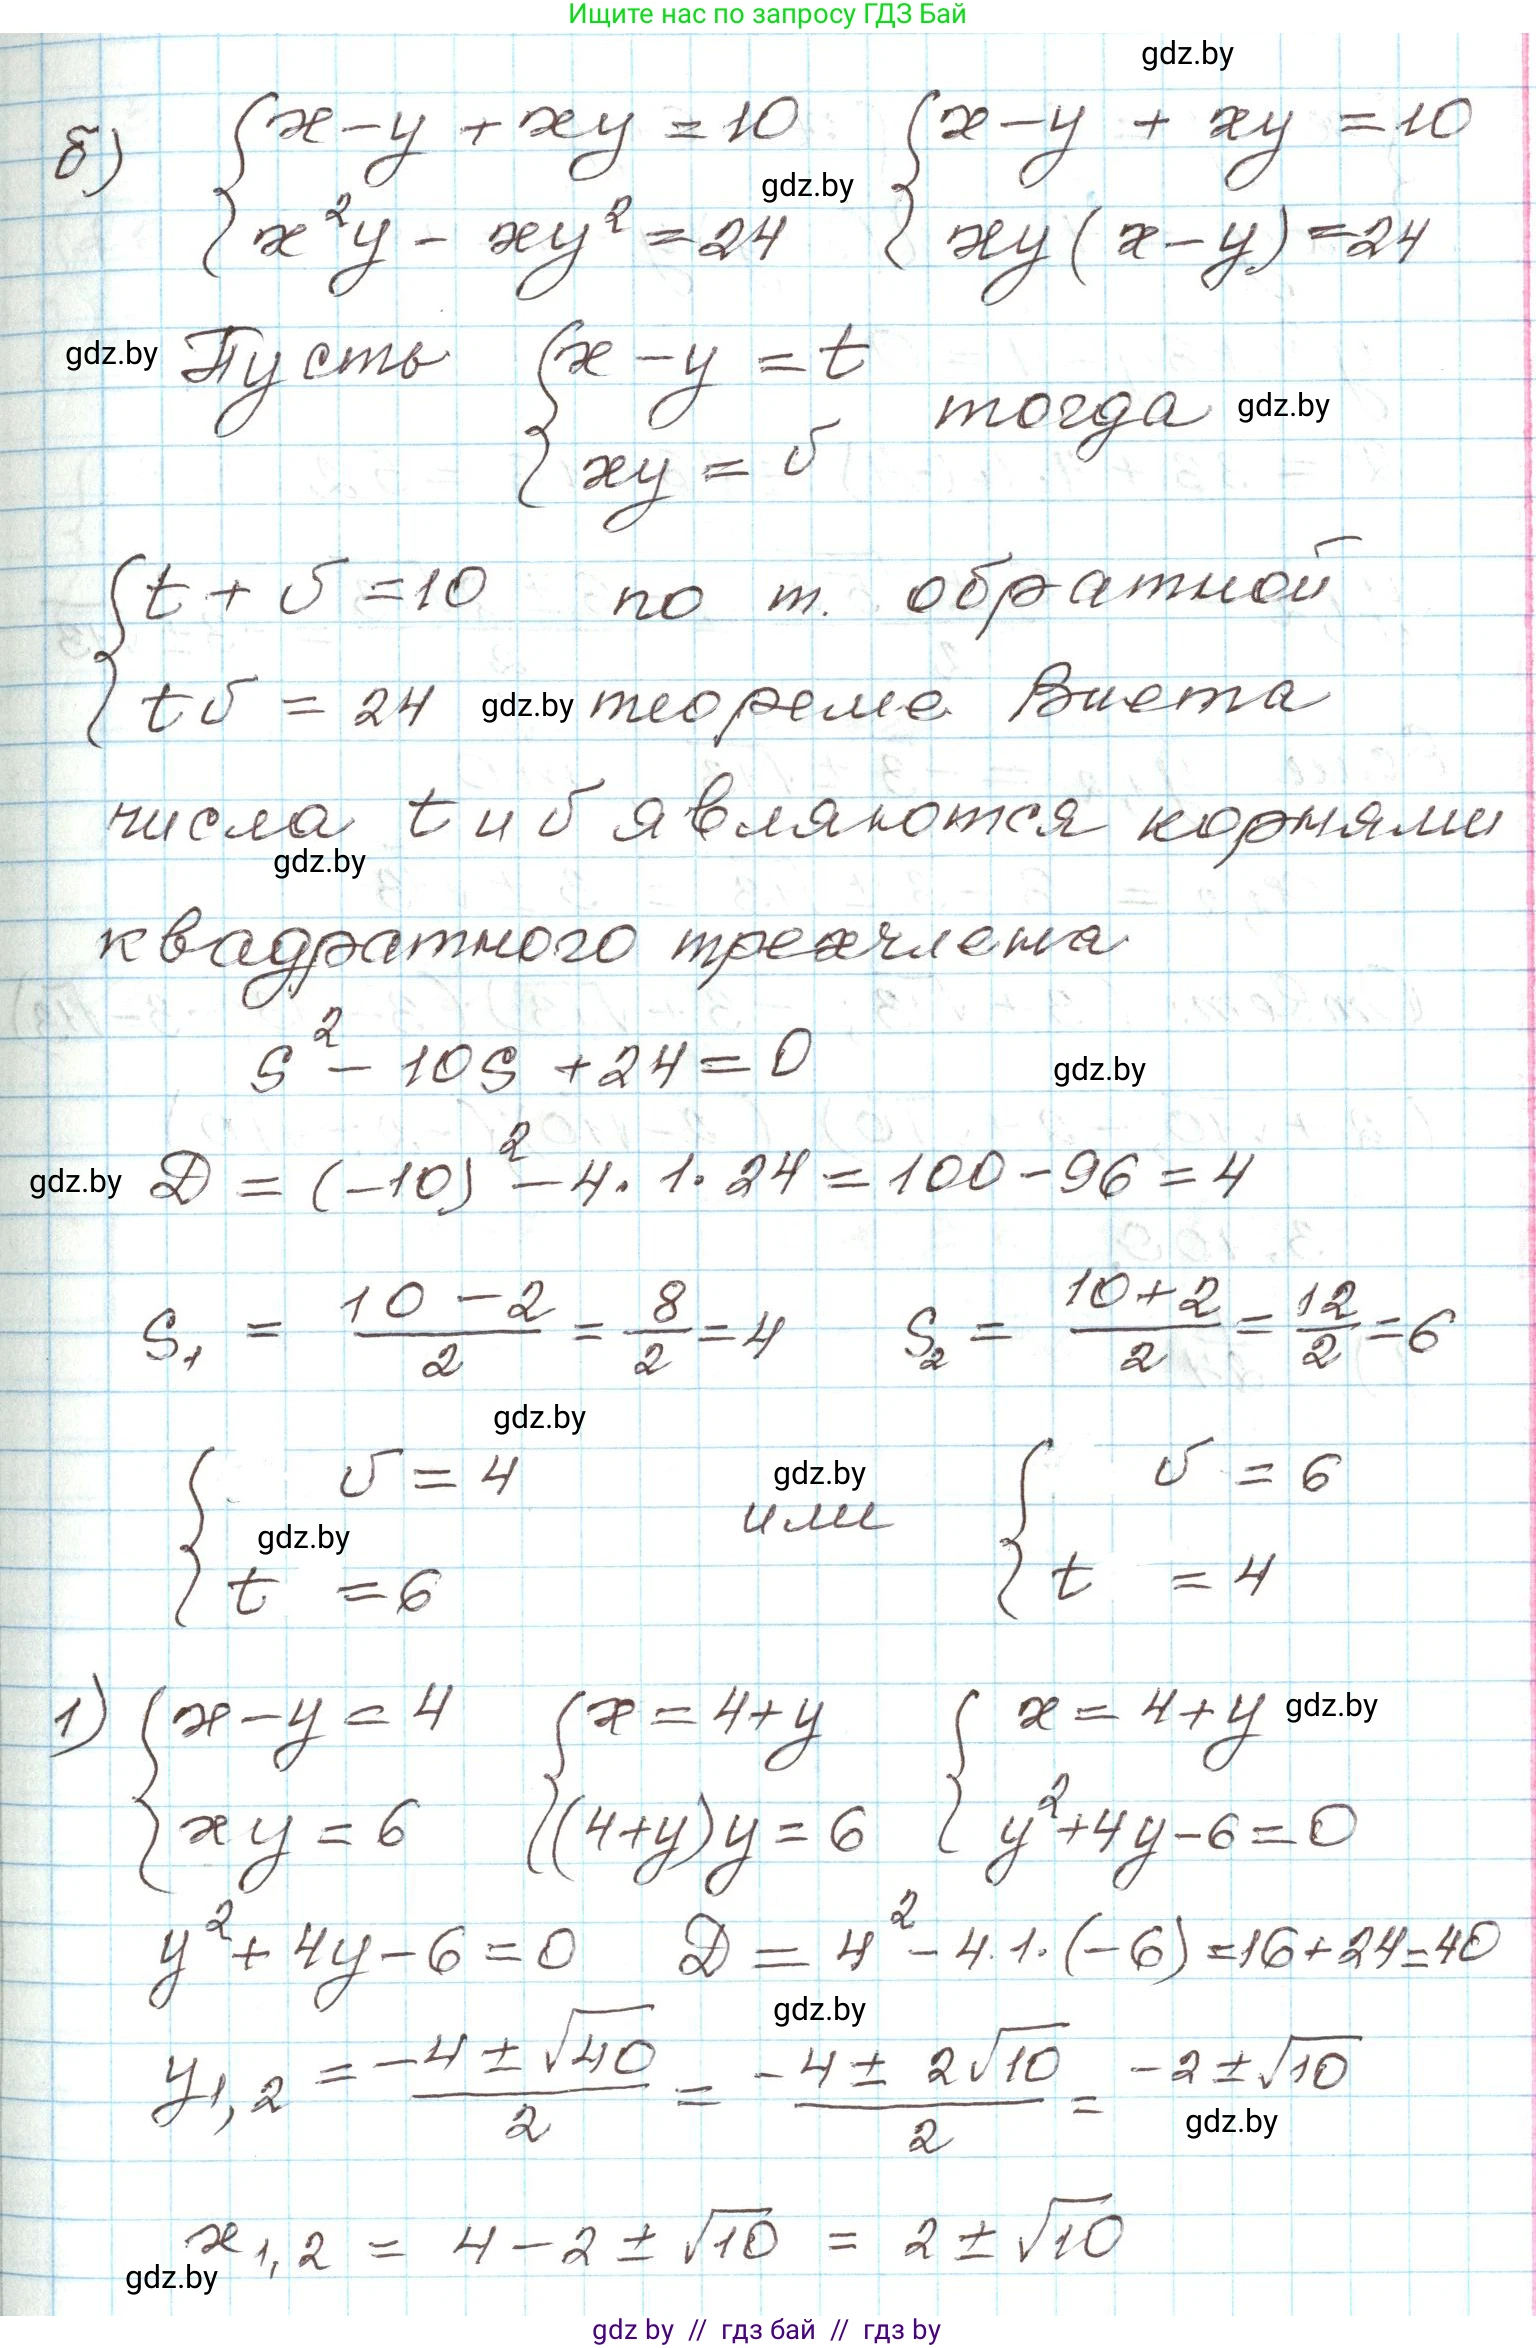 Ищите нас по запросу ГДЗ Бай
gdz.by
б) { x - y + xy = 10 { x - y + xy = 10
gdz.by
{ x² y - xy² = 24 { xy ( x - y ) = 24
gdz.by Пусть { x - y = t
{ xy = υ тогда gdz.by
{ t + υ = 10 по т. обратной
{ tυ = 24 gdz.by теореме Виета
числа t и υ являются корнями
gdz.by
квадратного трехчлена
s² - 10s + 24 = 0 gdz.by
gdz.by D = (-10)² - 4 · 1 · 24 = 100 - 96 = 4
s₁ = (10 - 2)/2 = 8/2 = 4 s₂ = (10 + 2)/2 = 12/2 = 6
gdz.by
{ υ = 4 gdz.by { υ = 6
gdz.by или
{ t = 6 { t = 4
1) { x - y = 4 { x = 4 + y { x = 4 + y gdz.by
{ xy = 6 { (4 + y) y = 6 { y² + 4y - 6 = 0
y² + 4y - 6 = 0 D = 4² - 4 · 1 · (-6) = 16 + 24 = 40
gdz.by
y₁,₂ = (-4 ± √40)/2 = (-4 ± 2√10)/2 = -2 ± √10
gdz.by
x₁,₂ = 4 - 2 ± √10 = 2 ± √10
gdz.by
gdz by // гдз бай // гдз by